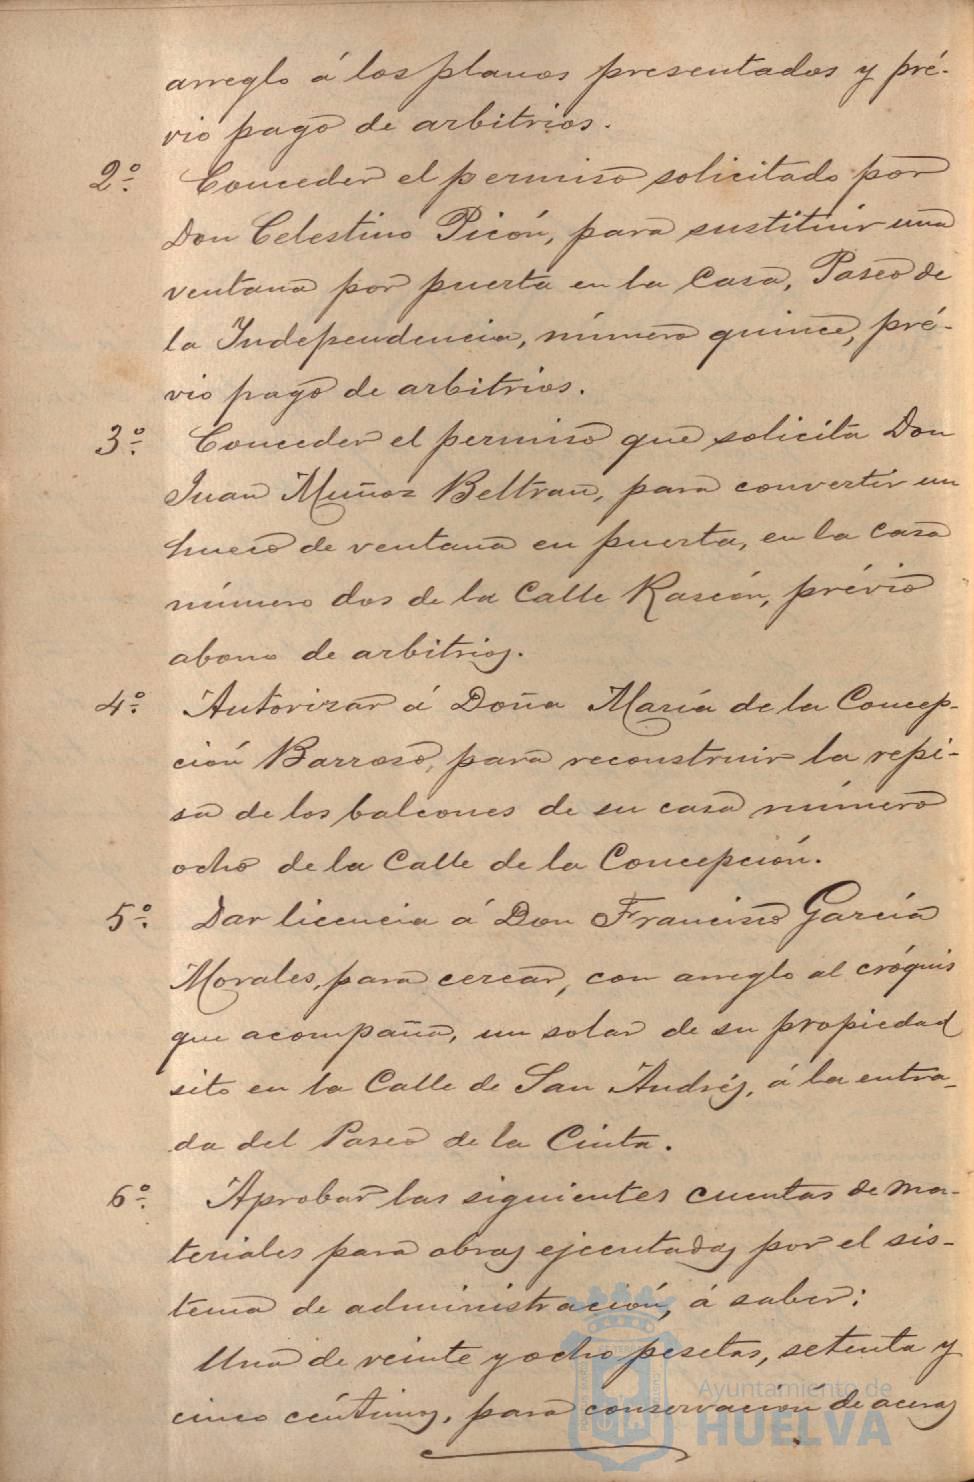 arreglo á los planos presentados y pré-
vio pago de arbitrios.
2.º Conceder el permiso solicitado por
Don Celestino Picón, para sustituir una
ventana por puerta en la Casa, Paseo de
la Independencia, número quince, pré-
vio pago de arbitrios.
3.º Conceder el permiso que solicita Don
Juan Muñoz Beltran, para convertir un
hueco de ventana en puerta, en la casa
número dos de la Calle Rascón, prévio
abono de arbitrios.
4.º Autorizar á Doña María de la Concep-
ción Barroso, para reconstruir la repi-
sa de los balcones de su casa número
ocho de la Calle de la Concepción.
5.º Dar licencia á Don Francisco García
Morales, para cercar, con arreglo al cróquis
que acompaña, un solar de su propiedad
sito en la Calle de San Andrés, á la entra-
da del Paseo de la Cinta.
6.º Aprobar las siguientes cuentas de ma-
teriales para obras ejecutadas por el sis-
tema de administración, á saber:
Una de veinte y ocho pesetas, setenta y
cinco céntimos, para conservación de aceras
Ayuntamiento de
HUELVA